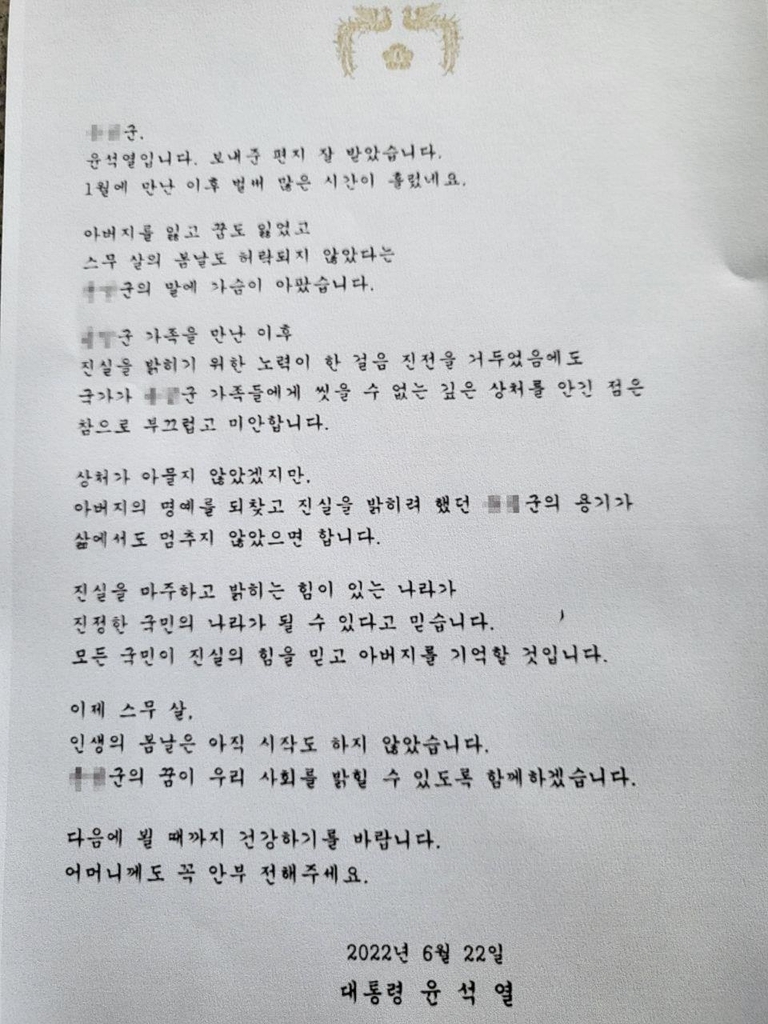 군.
윤석열입니다. 보내준 편지 잘 받았습니다.
1월에 만난 이후 벌써 많은 시간이 흘렀네요.
아버지를 잃고 꿈도 잃었고
스무 살의 봄날도 허락되지 않았다는
군의 말에 가슴이 아팠습니다.
군 가족을 만난 이후
진실을 밝히기 위한 노력이 한 걸음 진전을 거두었음에도
국가가 군 가족들에게 씻을 수 없는 깊은 상처를 안긴 점은
참으로 부끄럽고 미안합니다.
상처가 아물지 않았겠지만,
아버지의 명예를 되찾고 진실을 밝히려 했던 군의 용기가
삶에서도 멈추지 않았으면 합니다.
진실을 마주하고 밝히는 힘이 있는 나라가
진정한 국민의 나라가 될 수 있다고 믿습니다.
모든 국민이 진실의 힘을 믿고 아버지를 기억할 것입니다.
이제 스무 살,
인생의 봄날은 아직 시작도 하지 않았습니다.
군의 꿈이 우리 사회를 밝힐 수 있도록 함께하겠습니다.
다음에 뵐 때까지 건강하기를 바랍니다.
어머니께도 꼭 안부 전해주세요.
2022년 6월 22일
대통령 윤 석 열